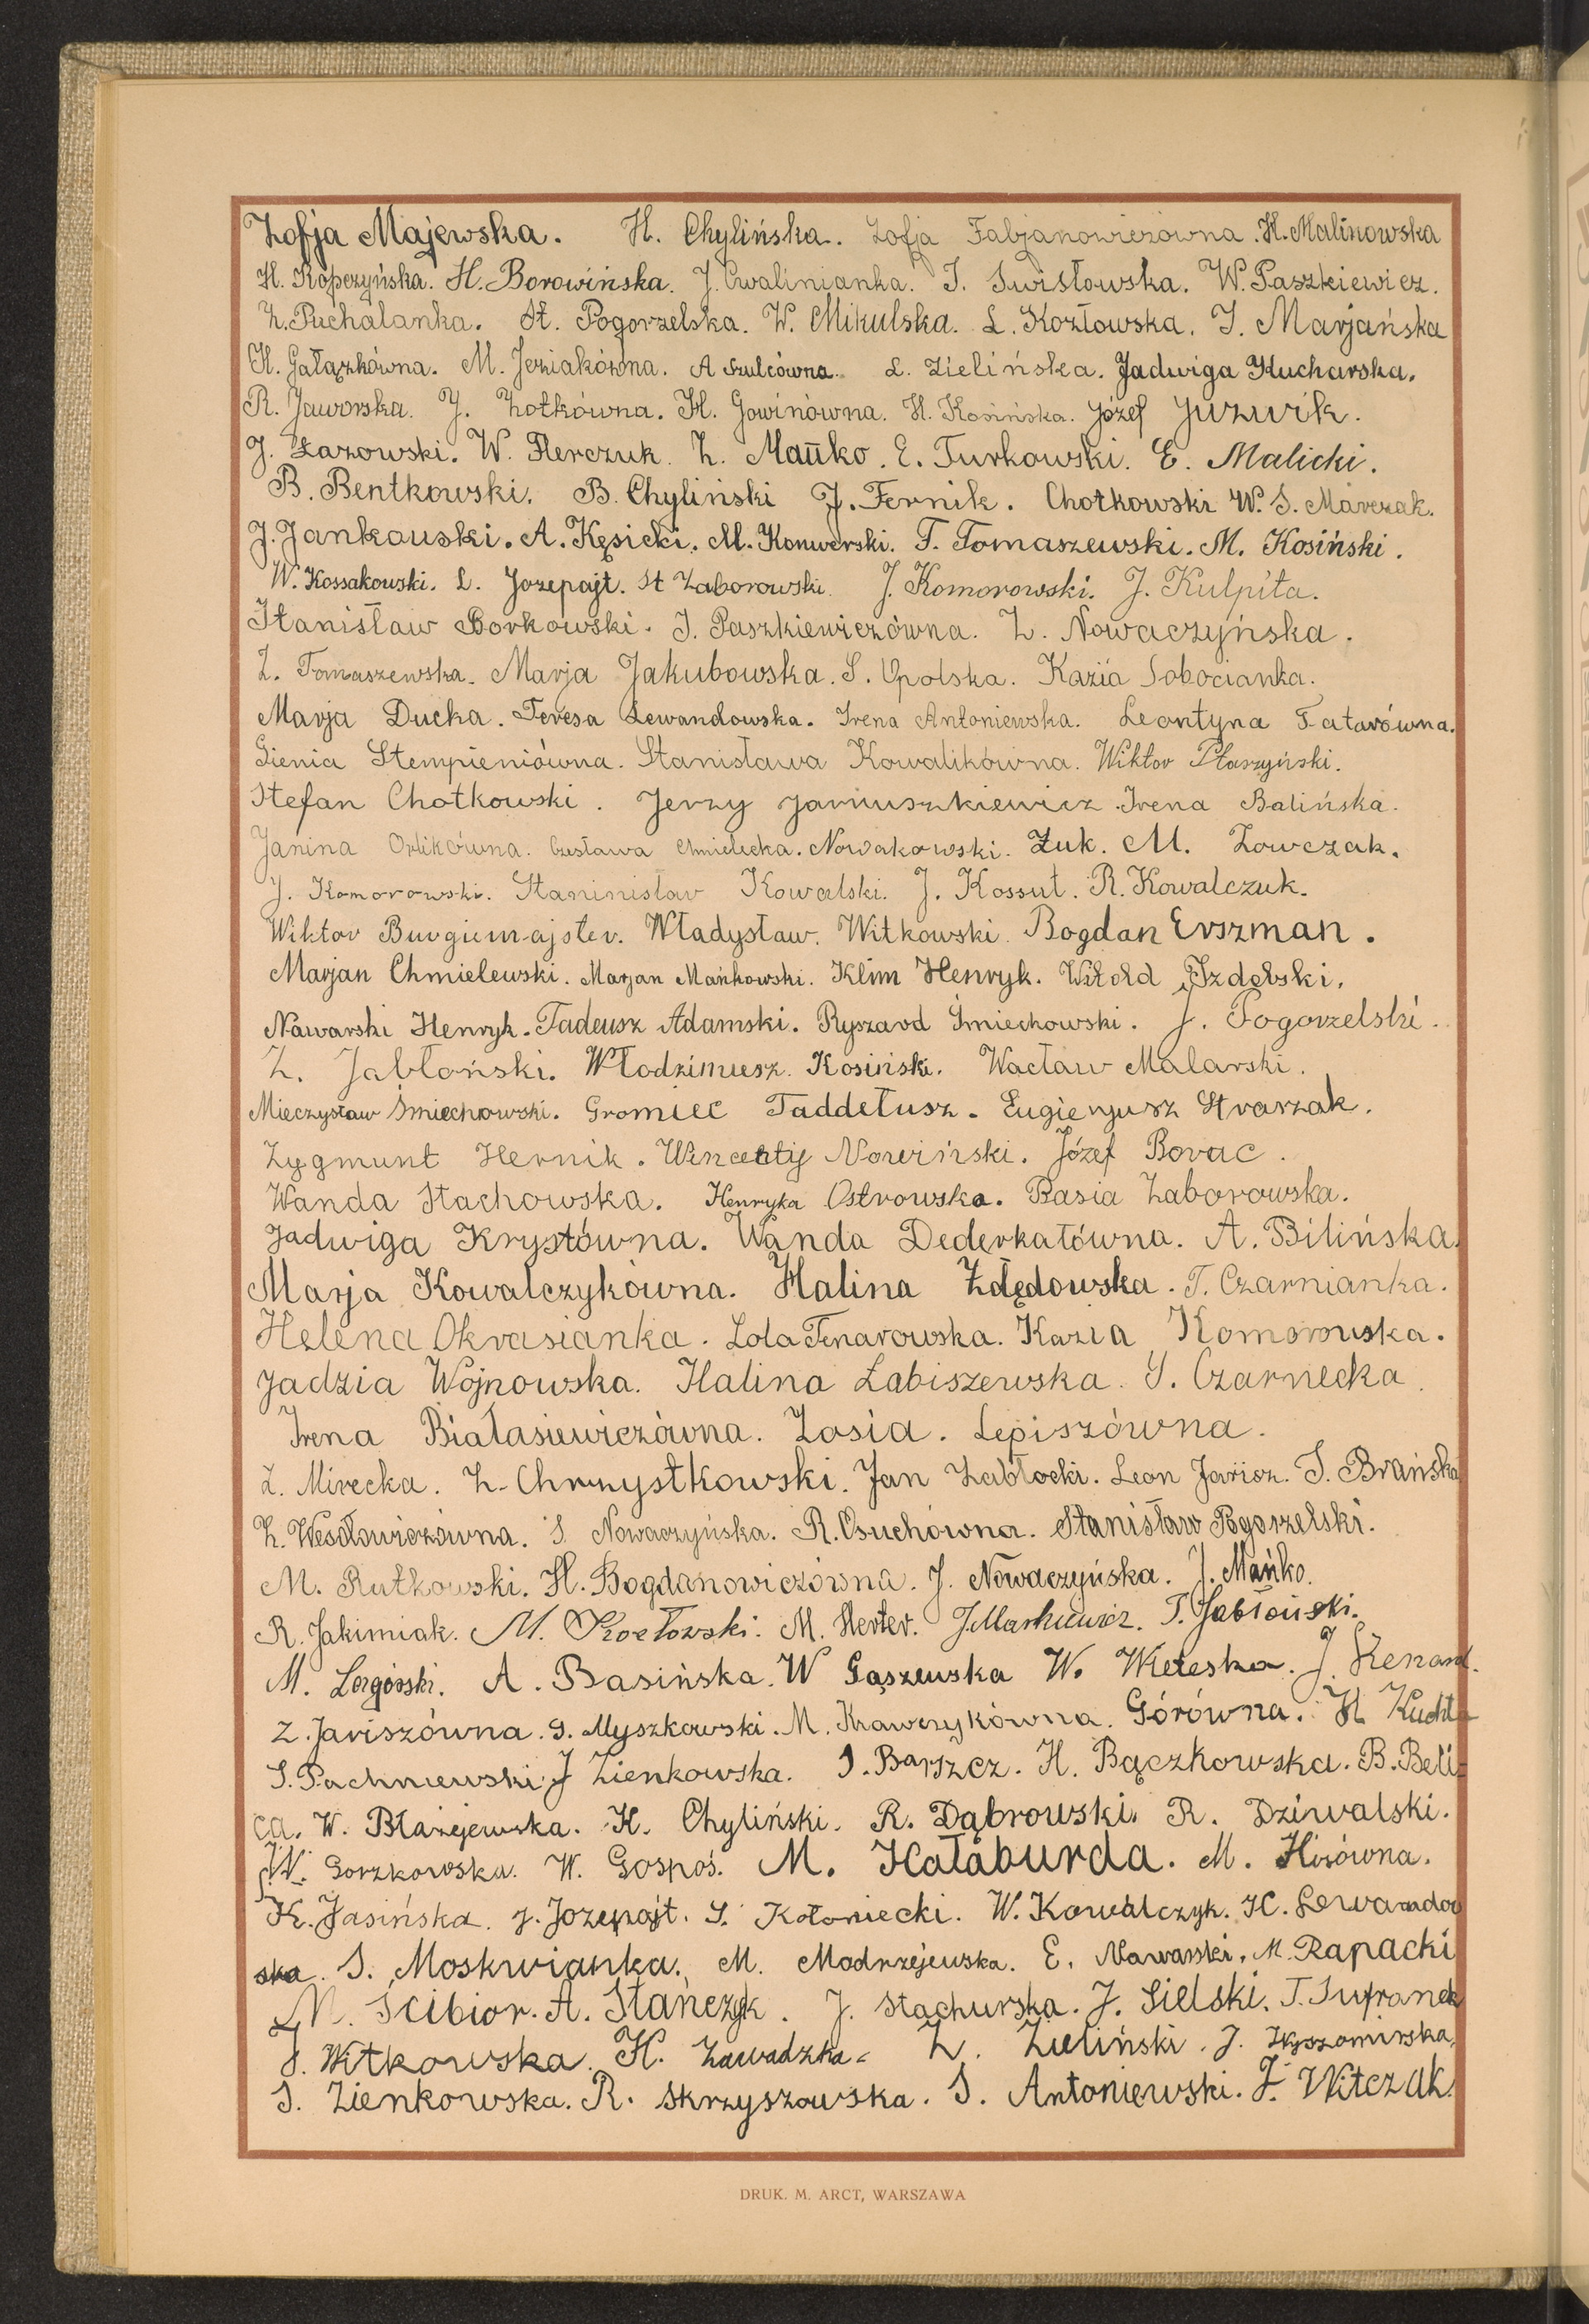 Zofja Majewska. H. Chylińska. Zofja Fabjanowiczówna. H. Malinowska
H. Kopczyńska. H. Borowińska. J. Cwalinianka. I. Swisłowska. W. Paszkiewicz.
Z. Puchalanka. St. Pogorzelska. W. Mikulska. L. Kozłowska. J. Marjańska
H. Gałązkówna. M. Jeziakówna. A Szulcówna. L. Zielińska. Jadwiga Kucharska.
R. Jaworska. J. Żotkówna. H. Gowinówna. H. Kosińska. Józef Juzwik.
J. Łazowski. W. Flerczuk. Z. Mańko. E. Turkowski. E. Malicki.
B. Bentkowski. B. Chyliński J. Fernik. Chotkowski W. S. Marczak.
J. Jankauski. A. Kęsicki. M. Konwerski. T. Tomaszewski. M. Kosiński.
W. Kossakowski. L. Jozepajt. St Zaborowski. J. Komorowski. J. Kulpita.
Stanisław Borkowski. J. Paszkiewiczówna. Z. Nowaczyńska.
Z. Tomaszewska. Marja Jakubowska. S. Opolska. Kazia Sobocianka.
Marja Ducka. Teresa Lewandowska. Irena Antoniewska. Leontyna Tatarówna.
Gienia Stempieniówna. Stanisława Kowalikówna. Wiktor Płaszyński.
Stefan Chotkowski. Jerzy Januszkiewicz. Irena Balińska.
Janina Orlikówna. Czesława Chmielecka. Nowakowski. Żuk. M. Łowczak.
J. Komorowski. Staninisław Kowalski. J. Kossut. R. Kowalczuk.
Wiktor Burgiemajster. Władysław. Witkowski. Bogdan Erszman.
Marjan Chmielewski. Marjan Mańkowski. Klim Henryk. Witold Izdebski.
Nawarski Henryk. Tadeusz Adamski. Ryszard Śmiechowski. J. Pogorzelski.
Z. Jabłoński. Włodzimiesz. Kosiński. Wacław Malarski.
Mieczysław Śmiechowski. Gromiec Taddełusz. Eugienjusz Starzak.
Zygmunt Hernik. Wincenty Nowiński. Józef Borac.
Wanda Stachowska. Henryka Ostrowska. Basia Zaborowska.
Jadwiga Krystówna. Wanda Dederkałówna. A. Bilińska.
Marja Kowalczykówna. Halina Żdędowska. T. Czarnianka.
Helena Okrasianka. Lola Tenarowska. Kazia Komorowska.
Jadzia Wojnowska. Halina Łabiszewska. S. Czarnecka.
Irena Białasiewiczówna. Zosia. Lepiszówna.
Z. Mirecka. Z. Chrzystkowski. Jan Zabłocki. Leon Jarisz. S. Brańska
Z. Wesołowiczówna. S. Nowaczyńska. R. Osuchówna. Stanisław Pogorzelski.
M. Rutkowski. H. Bogdanowiczówna. J. Nowaczyńska. J. Mańko.
R. Jakimiak. M. Kozłowski. M. Herter. J. Markiewicz. T. Jabłoński.
M. Zagórski. A. Basińska. W Gąszewska W. Wieteska. J. Renard.
Z. Jariszówna. S. Myszkowski. M. Krawczykówna. Górówna. H. Kuchta
S. Pachniewski J Zienkowska. S. Barszcz. H. Bączkowska. B. Beli-
ca. W. Błażejewska. K. Chyliński. R. Dąbrowski. R. Dziwalski.
W. Gorzkowska. W. Gospoś. M. Hałaburda. M. Hisówna.
K. Jasińska. J. Jozepajt. S. Kołoniecki. W. Kowalczyk. H. Lewandow
ska. S. Moskwianka. M. Modrzejewska. E. Nawarski. M. Rapacki
M. Ścibior. A. Stańczyk. J. Stachurska. J. Sielski. T. Sufranek
J. Witkowska. H. Zawadzka. Z. Zieliński. J. Żyszomirska.
S. Zienkowska. R. Skrzyszowska. S. Antoniewski. J. Witczak.
DRUK. M. ARCT, WARSZAWA